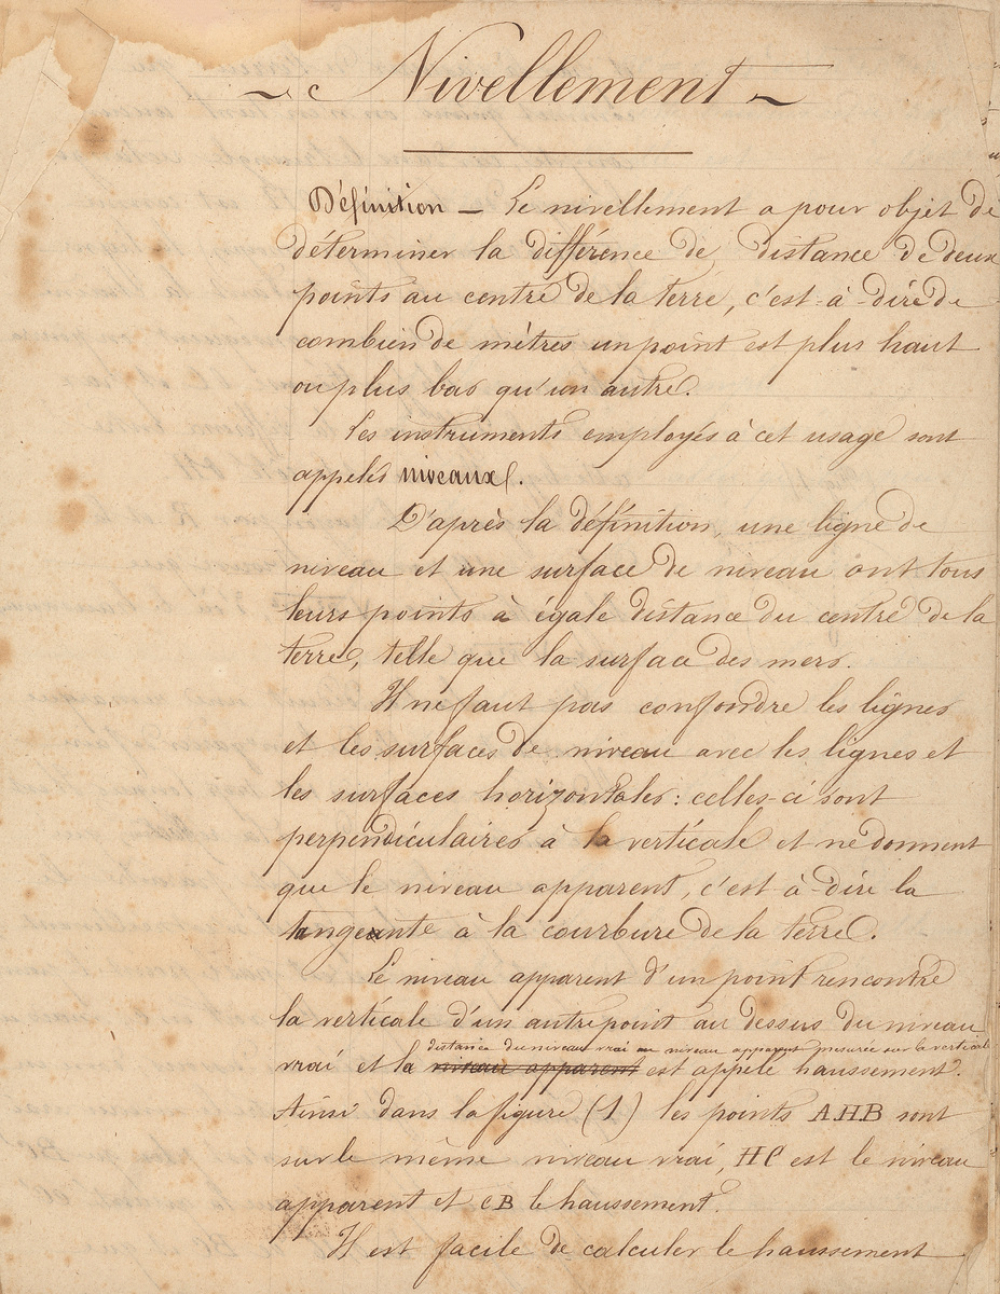 Nivellement
Définition — Le nivellement a pour objet de
déterminer la différence de distance de deux
points au centre de la terre, c'est-à-dire de
combien de mètres un point est plus haut
ou plus bas qu'un autre.
Les instruments employés à cet usage sont
appelés niveaux.
D'après la définition, une ligne de
niveau et une surface de niveau ont tous
leurs points à égale distance du centre de la
terre, telle que la surface des mers.
Il ne faut pas confondre les lignes
et les surfaces de niveau avec les lignes et
les surfaces horizontales : celles-ci sont
perpendiculaires à la verticale et ne donnent
que le niveau apparent, c'est-à-dire la
tangeante à la courbure de la terre.
Le niveau apparent d'un point rencontre
la verticale d'un autre point au dessus du niveau
distance du niveau vrai au niveau apparent mesurée sur la verticale
vrai et la niveau apparent est appelé haussement.
Ainsi dans la figure (1) les points A.H.B sont
sur le même niveau vrai, HC est le niveau
apparent et CB le haussement.
Il est facile de calculer le haussement